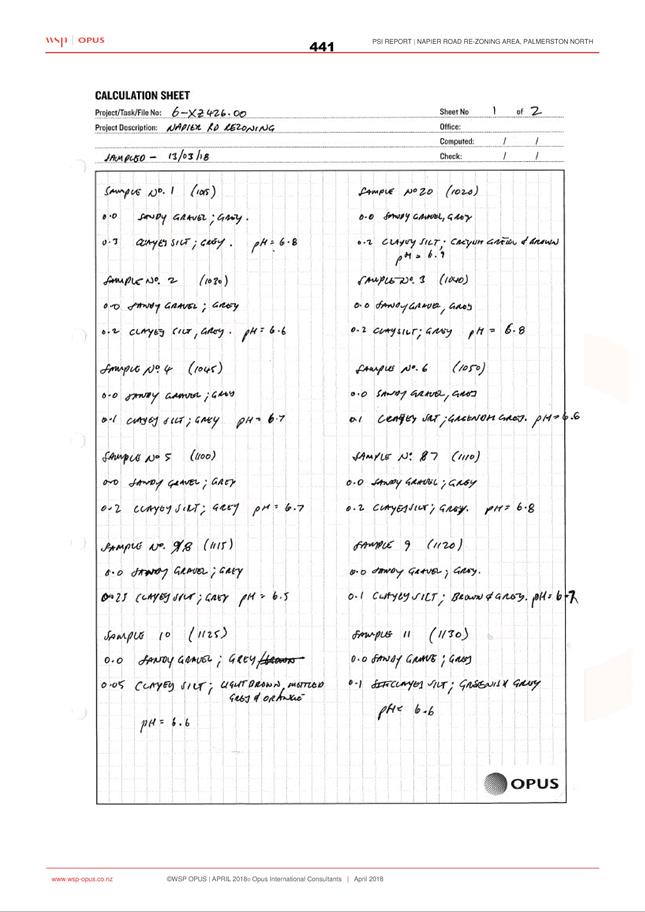 wsp | OPUS
441
PSI REPORT | NAPIER ROAD RE-ZONING AREA, PALMERSTON NORTH
CALCULATION SHEET
Project/Task/File No: 6-XZ426.00
Sheet No 1 of 2
Project Description: NAPIER RD REZONING
Office:
Computed: / /
SAMPLED - 13/03/18
Check: / /
SAMPLE No. 1 (1015)
0.0 SANDY GRAVEL; GREY.
0.3 CLAYEY SILT; GREY. pH = 6.8
SAMPLE No 20 (1020)
0.0 SANDY GRAVEL, GREY
0.2 CLAYEY SILT; GREYISH GREEN & BROWN
pH = 6.9
SAMPLE No. 2 (1030)
0.0 SANDY GRAVEL; GREY
0.2 CLAYEY SILT, GREY. pH = 6.6
SAMPLE No. 3 (1040)
0.0 SANDY GRAVEL, GREY
0.2 CLAY SILT; GREY pH = 6.8
SAMPLE No. 4 (1045)
0.0 SANDY GRAVEL; GREY
0.1 CLAYEY SILT; GREY pH = 6.7
SAMPLE No. 6 (1050)
0.0 SANDY GRAVEL, GREY
0.1 CLAYEY SILT; GREENISH GREY. pH = 6.6
SAMPLE No 5 (1100)
0.0 SANDY GRAVEL; GREY
0.2 CLAYEY SILT; GREY pH = 6.7
SAMPLE No. 7 (1110)
0.0 SANDY GRAVEL; GREY
0.2 CLAYEY SILT; GREY. pH = 6.8
SAMPLE No. 8 (1115)
0.0 SANDY GRAVEL; GREY
0.25 CLAYEY SILT; GREY pH = 6.5
SAMPLE 9 (1120)
0.0 SANDY GRAVEL; GREY.
0.1 CLAYEY SILT; BROWN & GREY. pH = 6.7
SAMPLE 10 (1125)
0.0 SANDY GRAVEL; GREY/BROWN
0.05 CLAYEY SILT; LIGHT BROWN, MOTTLED
GREY & ORANGE
pH = 6.6
SAMPLE 11 (1130)
0.0 SANDY GRAVE; GREY
0.1 CLAYEY SILT; GREENISH GREY
pH = 6.6
OPUS
www.wsp-opus.co.nz
©WSP OPUS | APRIL 2018© Opus International Consultants | April 2018